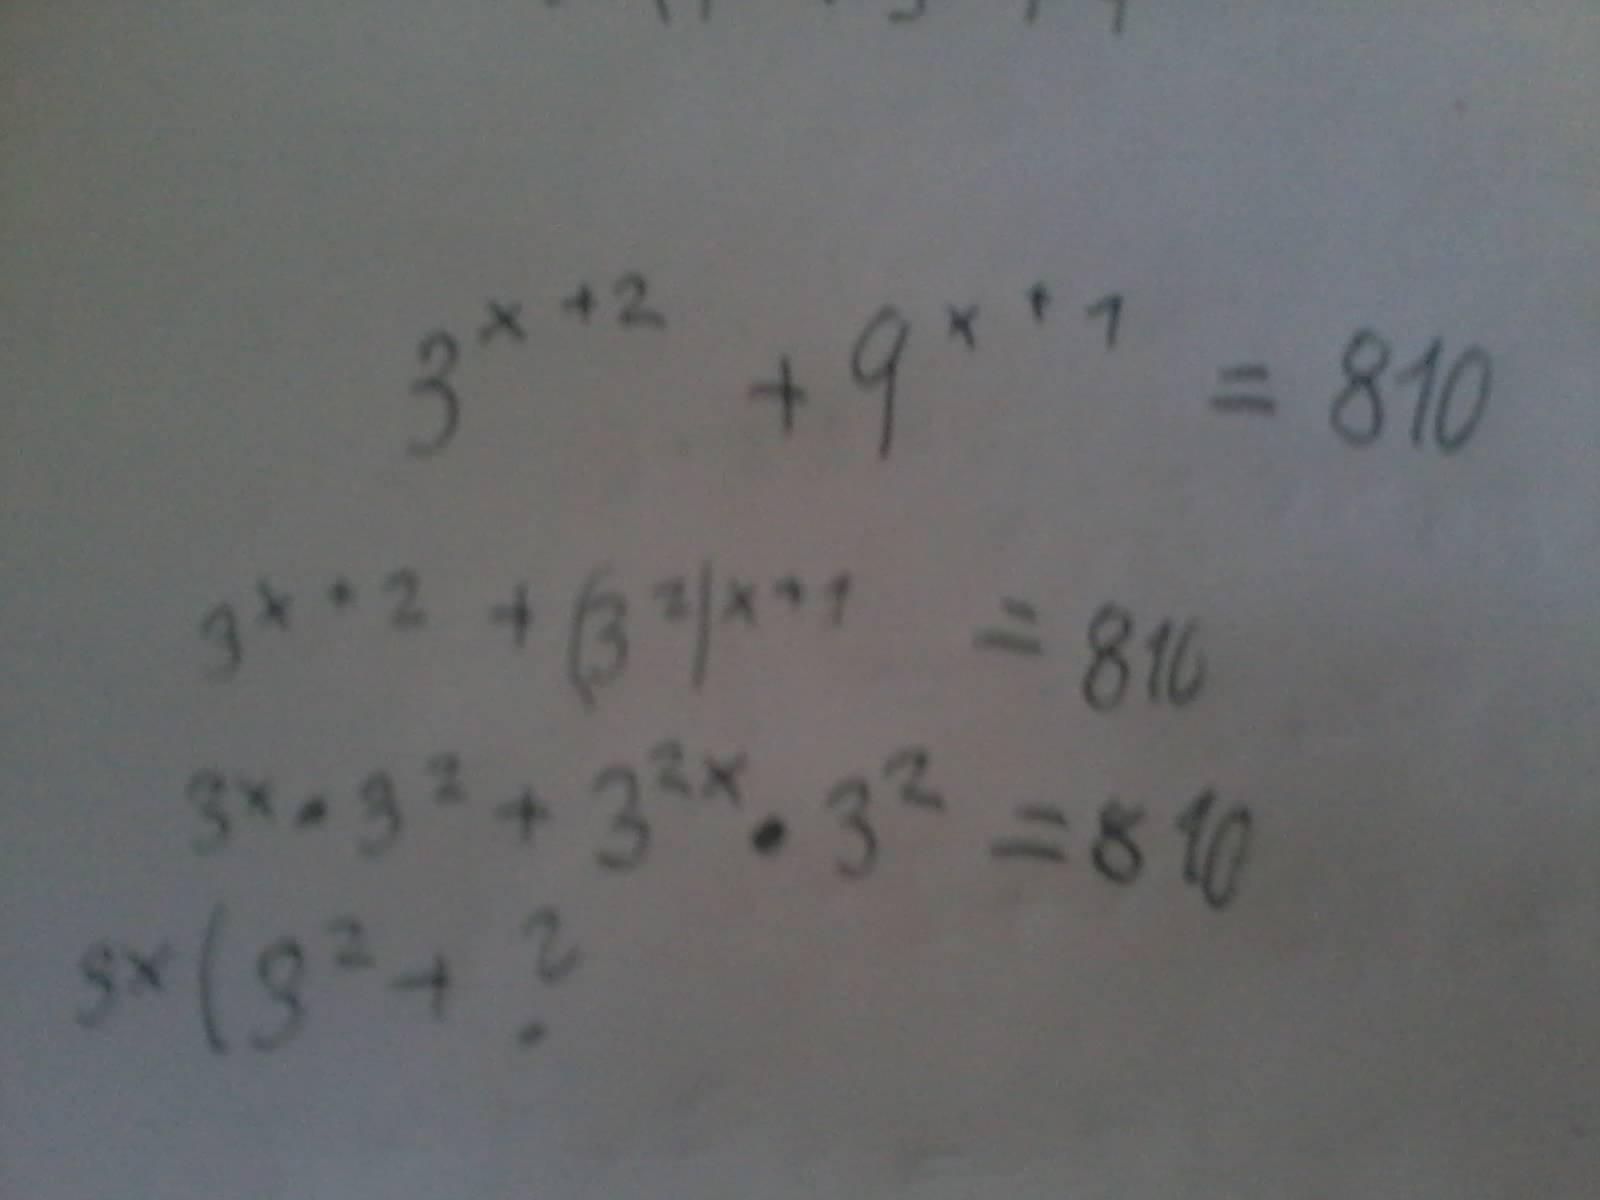 3^{x+2} + 9^{x+1} = 810
3^{x+2} + (3^2)^{x+1} = 810
3^x · 3^2 + 3^{2x} · 3^2 = 810
3^x (3^2 + ?